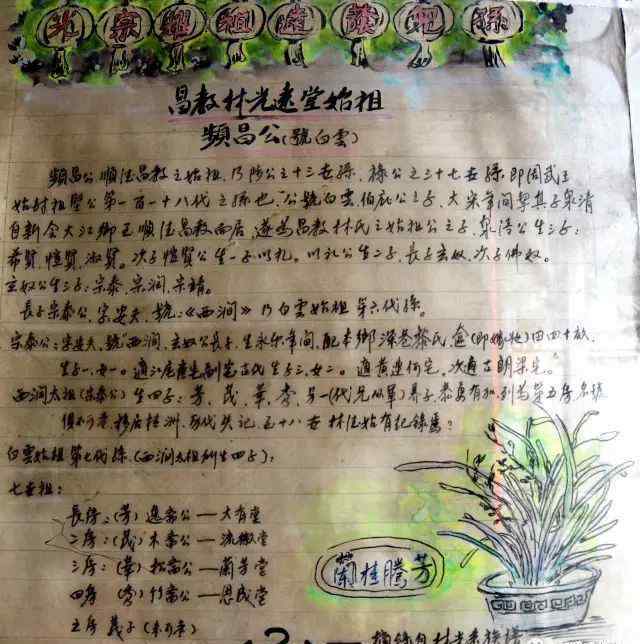 光宗耀祖惠護兒孫
昌教林光遠堂始祖
頻昌公(號白雲)
頻昌公順德昌教之始祖,乃 公之十三世孫,祿公之三十七世孫,即周武王
始封祖堅公第一百一十八代之孫也,公號白雲伯庇公之子,大宋年間 其子泉清
自新會大江鄉至順德昌教而居,遂為昌教林氏之始祖公之子,泉清公生三子:
希賢,愷賢,淑賢。次子愷賢公生一子以礼。以礼公生二子,長子玄奴,次子佛奴。
玄奴公生三子:宗泰,宗潤,宗靖。
長子宗泰公,字安夫,號:《西澗》乃白雲始祖第六代孫。
宗泰公:字安夫,號西澗,玄奴公長子,生永乐年间,配本鄉深巷黎氏, (即嫁妝)田四十畝,
生子一,女一。適江尾 生副室古氏生子三,女二。適黃連何宅,次適古朗梁宅。
西澗太祖(宗泰公)生四子:芳,茂,華,秀,另一(代光从軍)养子,恭勇有加,列为第五房,名諱
俱不可考,移居桂洲,历代失记,至十八世林法姑有紀錄焉?
白雲始祖第七代孫(西澗太祖所生四子):
七世祖:
長房:(芳)逸齋公—大有堂
二房:(茂)木齋公—流徽堂
三房:(華)松齋公—蘭芳堂
四房:(秀)竹齋公—思成堂
五房 義子(未可考)
蘭桂騰芳